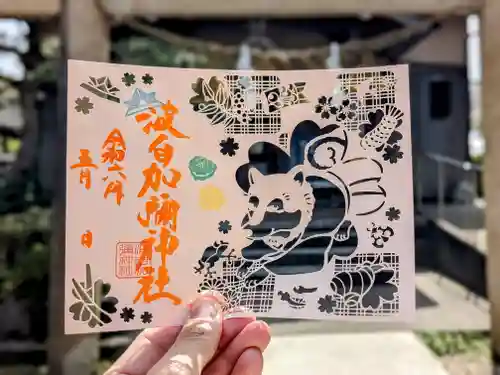 波自加彌神社
令和六年
五月　日